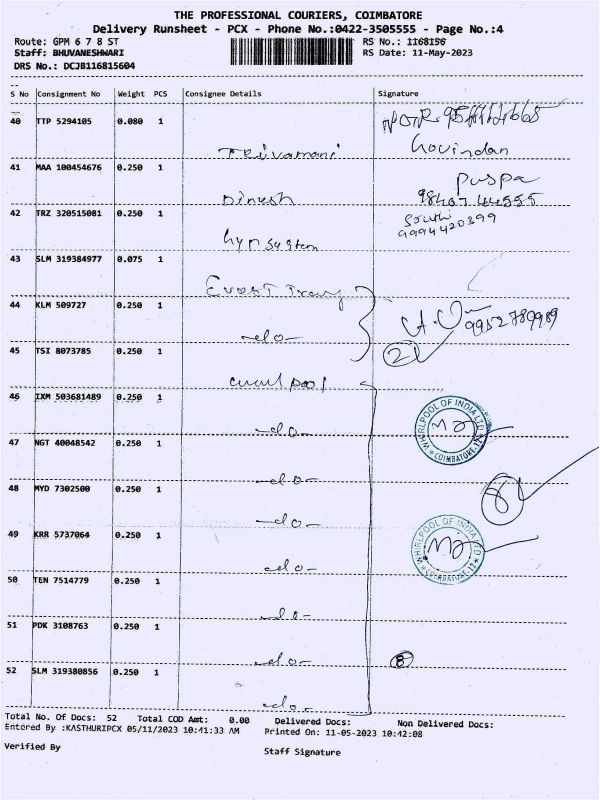 THE PROFESSIONAL COURIERS, COIMBATORE
Delivery Runsheet - PCX - Phone No.:0422-3505555 - Page No.:4
Route: GPM 6 7 8 ST
RS No.: 1168156
Staff: BHUVANESHWARI
RS Date: 11-May-2023
DRS No.: DCJB116815604
S No Consignment No Weight PCS Consignee Details Signature
40 TTP 5294105 0.080 1
Govindan
41 MAA 100454676 0.250 1
Puspa
Dinesh
98407 44555
42 TRZ 320515081 0.250 1
9994420399
43 SLM 319384977 0.075 1
44 KLM 509727 0.250 1
9952789989
-do-
45 TSI 8073785 0.250 1
2
46 IXM 503681489 0.250 1
WHIRLPOOL OF INDIA LTD.
* COIMBATORE-12 *
-do-
47 NGT 40048542 0.250 1
-do-
48 MYD 7302500 0.250 1
8
-do-
49 KRR 5737064 0.250 1
WHIRLPOOL OF INDIA LTD
* COIMBATORE-12 *
-do-
50 TEN 7514779 0.250 1
-do-
51 PDK 3108763 0.250 1
-do-
8
52 SLM 319380856 0.250 1
-do-
Total No. Of Docs: 52 Total COD Amt: 0.00 Delivered Docs: Non Delivered Docs:
Entered By :KASTHURIPCX 05/11/2023 10:41:33 AM Printed On: 11-05-2023 10:42:08
Verified By
Staff Signature